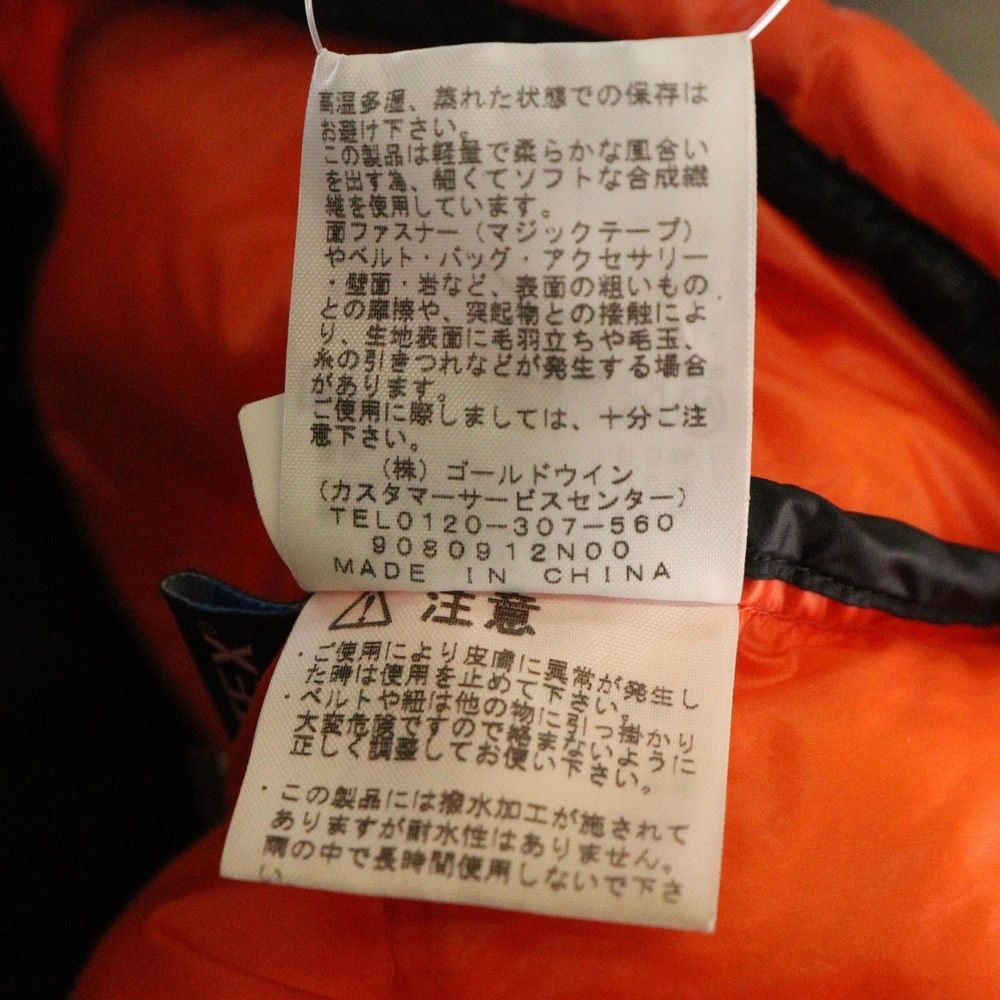 高温多湿、蒸れた状態での保存は
お避け下さい。
この製品は軽量で柔らかな風合い
を出す為、細くてソフトな合成繊
維を使用しています。
面ファスナー（マジックテープ）
やベルト・バッグ・アクセサリー
・壁面・岩など、表面の粗いもの
との摩擦や、突起物との接触によ
り、生地表面に毛羽立ちや毛玉、
糸の引きつれなどが発生する場合
があります。
ご使用に際しましては、十分ご注
意下さい。
（株）ゴールドウイン
（カスタマーサービスセンター）
TEL0120-307-560
9080912N00
MADE IN CHINA
⚠注意
・ご使用により皮膚に異常が発生し
た時は使用を止めて下さい。
・ベルトや紐は他の物に引っ掛かり
大変危険ですので絡まないように
正しく調整してお使い下さい。
・この製品には撥水加工が施されて
ありますが耐水性はありません。
雨の中で長時間使用しないで下さ
い
EX